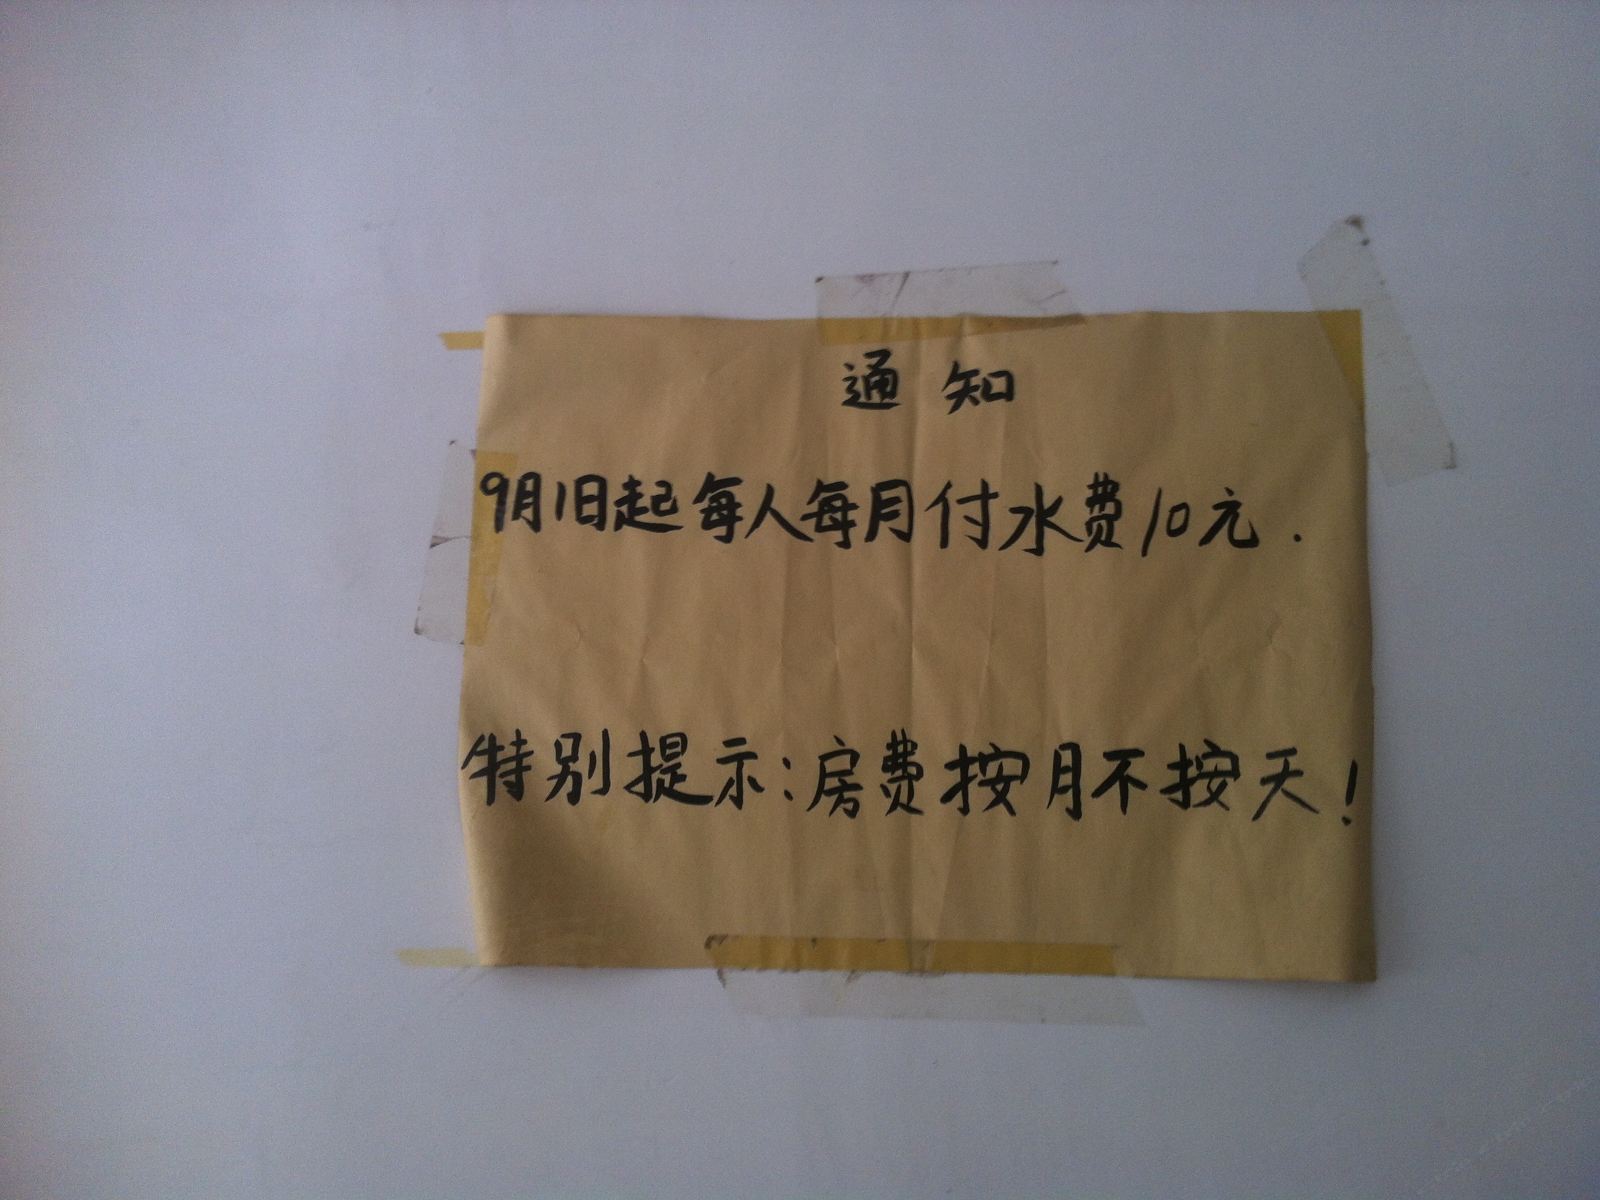 通知
9月1日起每人每月付水费10元.
特别提示:房费按月不按天!